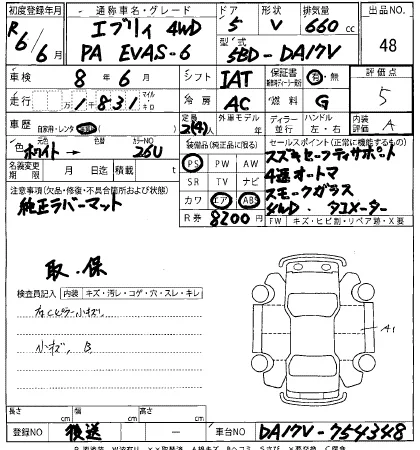 初度登録年月 通称車名・グレード ドア 形状 排気量 出品NO.
R6/6月 エブリィ 4WD 5 V 660cc 48
PA EVAS-6 型式 5BD-DA17V
車検 8年6月 シフト IAT 保証書 有・無 評価点
走行 1,831 マイル キロ 冷房 AC 燃料 G 5
車歴 自家用・レンタ 定員 2(4)人 外車モデル 年 ディーラー 並行 ハンドル 左・右 内装評価 A
色 元色 ホワイト → 色替 カラーNO 26U
装備品(純正品に限る) セールスポイント(正常に機能するもの)
名義変更期限 月 日迄 積載量 t
PS PW AW
SR TV ナビ
カワ エア ABS
R券 8200円
スズキセーフティサポート
4速オートマ
スモークガラス
4WD・タコメーター
FW キズ・ヒビ割・リペア跡・X
注意事項(欠品・修復・不具合箇所および状態)
純正ラバーマット
取・保
検査員記入 内装 キズ・汚レ・コゲ・穴・スレ・キレ
右Cピラー小キズ
小キズ、B
A1
長さ cm 幅 cm 高さ cm
登録NO 検送 — 車台NO DA17V-754348